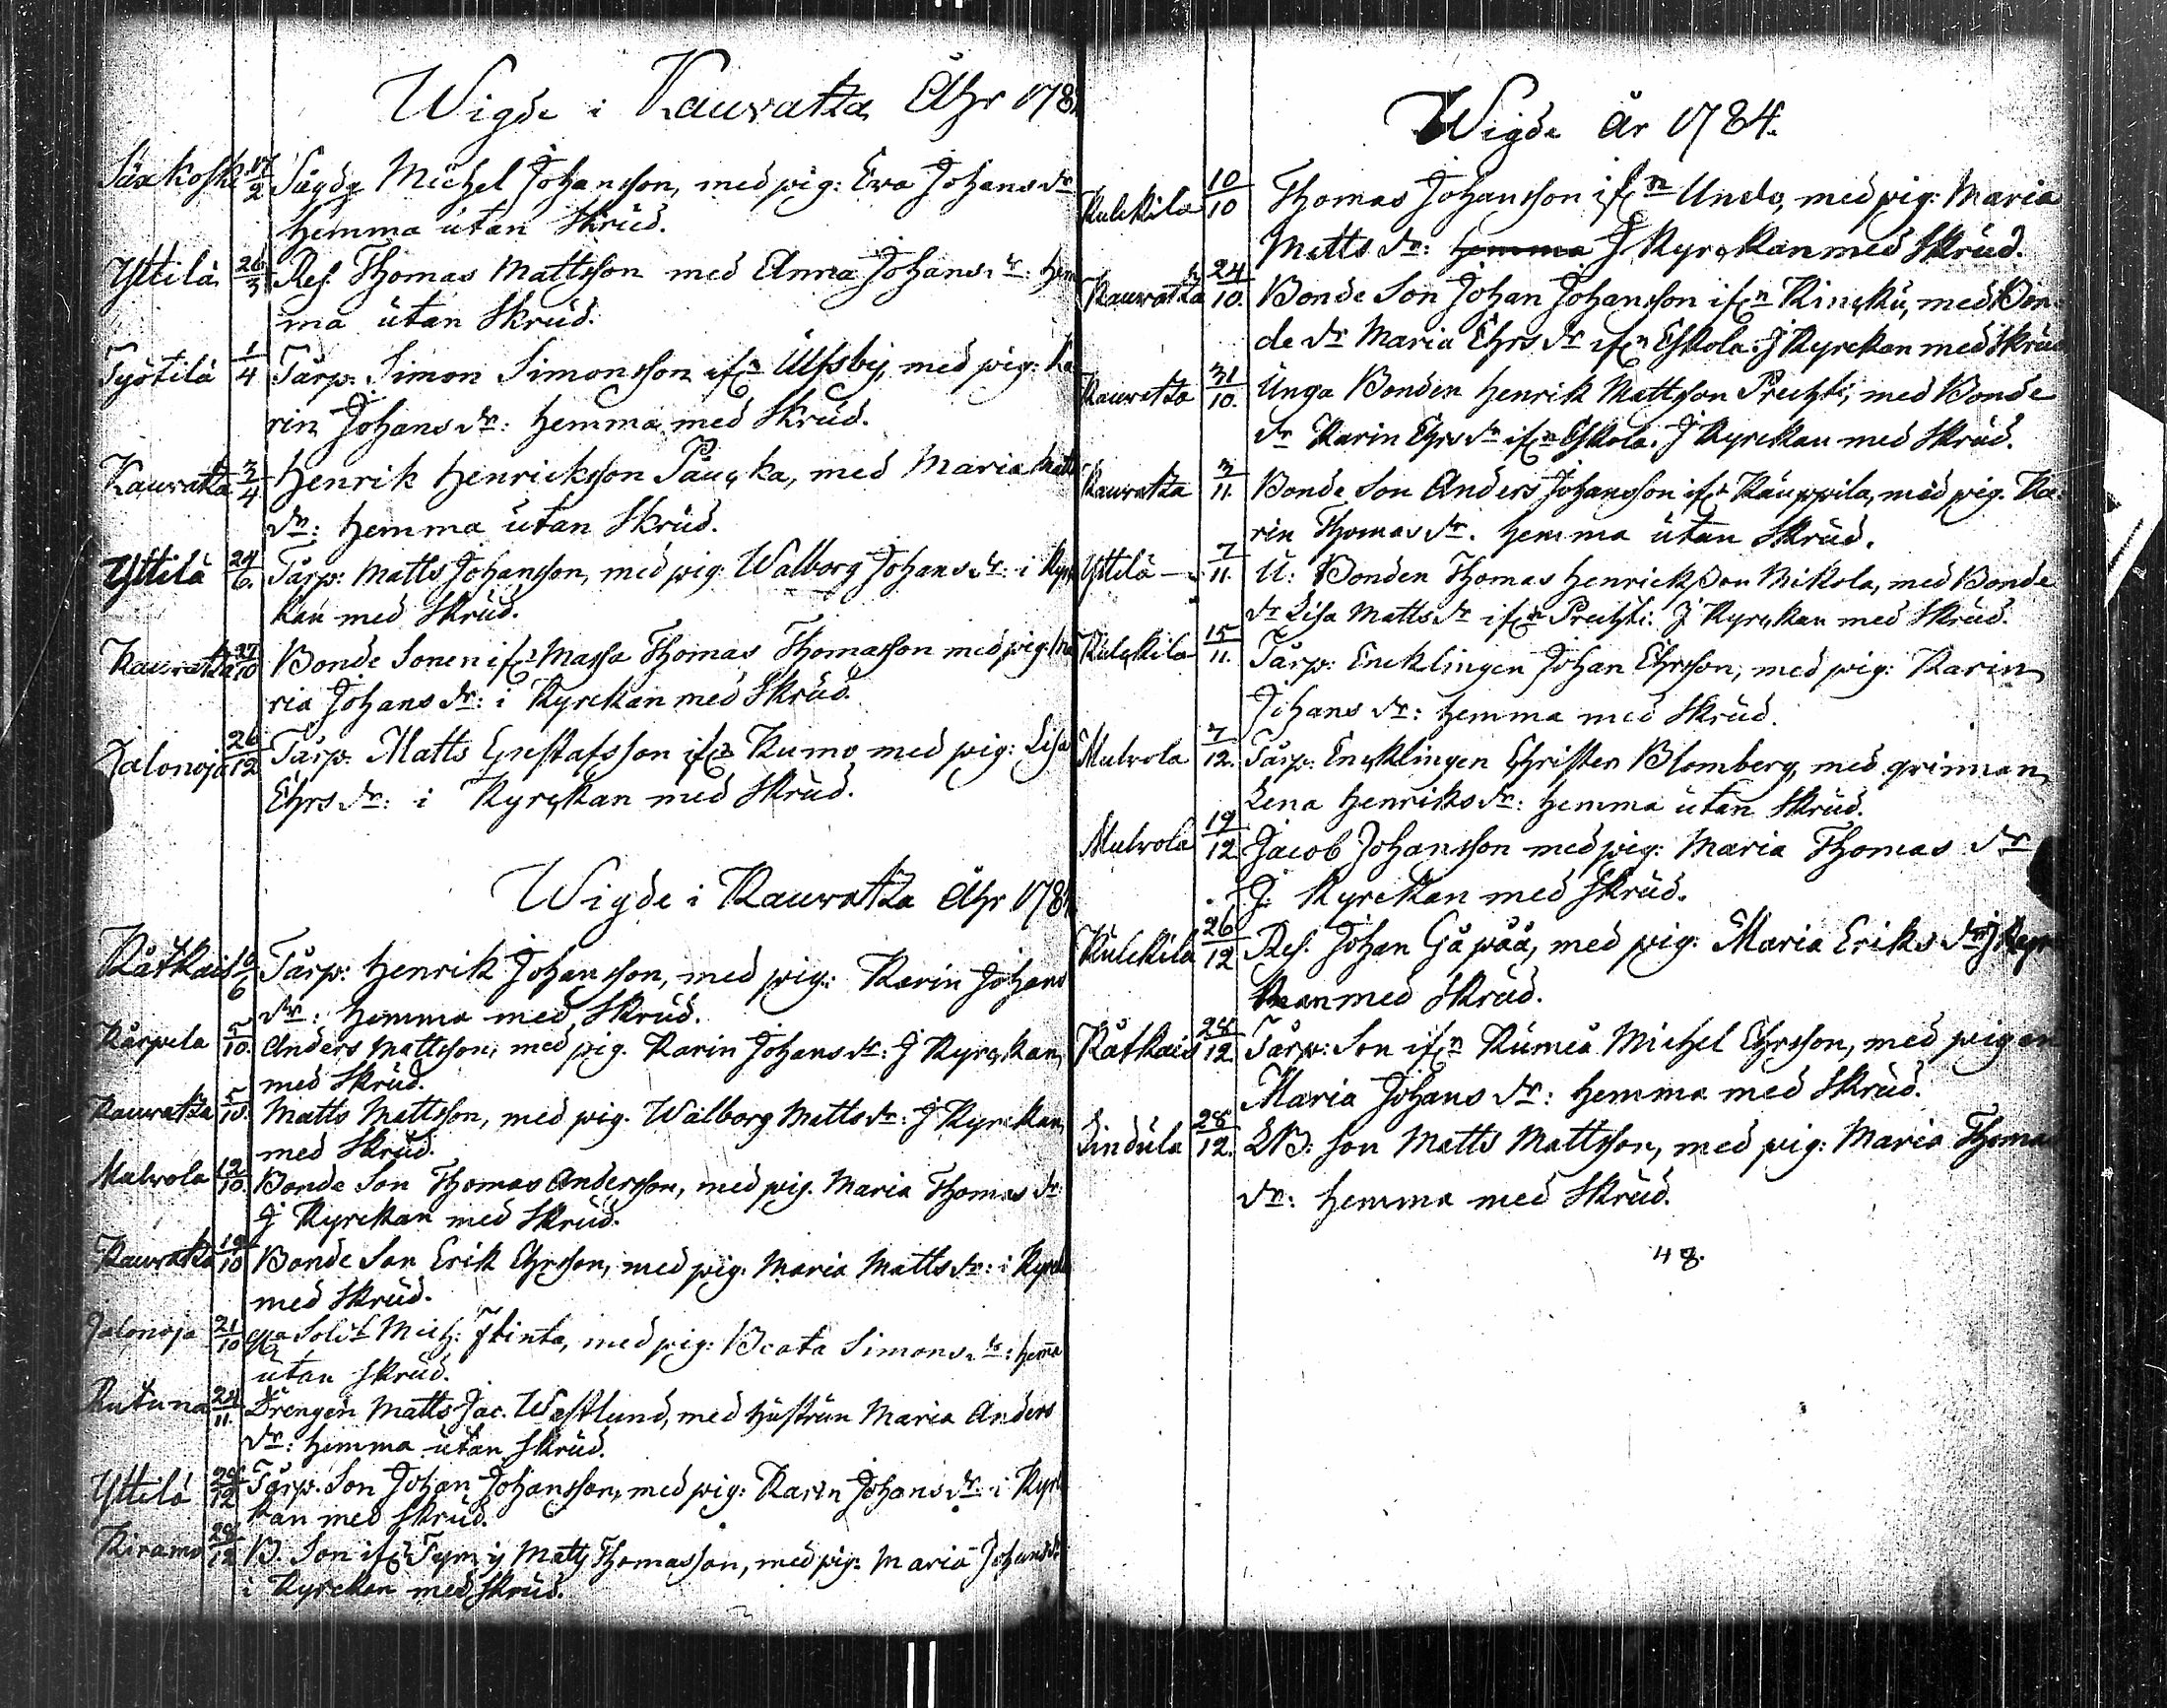 Wigde i Kauvatza Åhr 178
Säxkoski 17/2 Sägdg Michel Johansson, med pig: Eva Johans dr
hemma utan Skrud.
Yttilä 26/3 Res. Thomas Mattsson med Anna Johans dr: hem
ma utan Skrud.
Työtilä 1/4 Tårp. Simon Simonsson ifrn Ulfsby, med pig: Ka
rin Johans dr: hemma med Skrud.
Kauvatza 3/4 Henrik Henricksson Paucka, med Maria Matts
dr: hemma utan Skrud.
Yttilä 24/6. Tårp: Matts Johansson, med pig: Walborg Johans dr: i Kyrc
kan med Skrud.
Kauvatza 27/10 Bonde Sonen ifrn Massa Thomas Thomasson med pig: Ma
ria Johans dr: i Kyrckan med Skrud.
Jalonoja 26/12 Tårp. Matts Gustafsson ifrn Kumo med pig: Lisa
Ehrs dr: i Kyrckan med Skrud.
Wigde i Kauvatza Åhr 178
Råtkais /6 Tårp: Henrik Johansson, med pig: Karin Johans
dr: hemma med Skrud.
Kårpela 5/10. Anders Mattsson, med pig. Karin Johans dr: J Kyrckan,
med Skrud.
Kauvatza 5/10. Matts Mattsson, med pig. Walborg Matts dr: J Kyrckan,
med Skrud.
Malvola 12/10. Bonde Son Thomas Andersson, med pig. Maria Thomas dr
J Kyrckan med Skrud.
Kauvatza 19/10 Bonde Son Erik Ehrsson, med pig. Maria Matts dr: i Kyrck
med Skrud.
Jalonoja 21/10 Solt Mich: Flinta, med pig: Beata Simons dr: hema
utan skrud.
Kutuna 24/11. Drengen Matts Jac. Wästlund, med hustrun Maria Anders
dr: hemma utan skrud.
Yttilä 26/12 Tårp. Son Johan Johansson, med pig: Karin Johans dr: i Kyrc
kan med skrud.
Kiramo 28/12 B. Son ifrn Matts Thomasson, med pig: Maria Johans dr
i Kyrckan med skrud.
Wigde år 1784.
Kulckila 10/10 Thomas Johansson ifrn Undo, med pig: Maria
Matts dr: hemma J Kyrckan med Skrud.
Kauvatza 24/10. Bonde Son Johan Johansson ifrn Kincku, med Bon
de dr Maria Ehrs dr ifrn Eskola. J Kyrckan med Skrud
Kauvatza 31/10. Unga Bonden Henrik Mattsson Prechti, med Bonde
dr Karin Ehrs dr ifrn Eskola. J Kyrckan med Skrud.
Kauvatza 3/11. Bonde Son Anders Johansson ifrn Kauppila, med pig. Ka
rin Thomas dr. hemma utan Skrud.
Yttilä 7/11. U: Bonden Thomas Henricksson Mikola, med Bonde
dr Lisa Matts dr ifrn Prechti. J Kyrckan med Skrud.
Kulckila 15/11. Tårp: Encklingen Johan Ehrsson, med pig: Karin
Johans dr: hemma med Skrud.
Malvola 7/12. Tårp: Encklingen Christer Blomberg, med qvinnan
Lena Henriks dr: hemma utan Skrud.
Malvola 19/12 Jacob Johansson med pig: Maria Thomas dr
J Kyrckan med Skrud.
Kulckila 26/12 Res. Johan Gåpåå, med pig: Maria Eriks dr J Kyrc
kan med Skrud.
Råtkais 28/12 Tårp: Son ifrn Kumeå Michel Ehrsson, med pigan
Maria Johans dr: hemma med Skrud.
Lindula 28/12. LB: son Matts Mattsson, med pig: Maria Thoma
dr: hemma med Skrud.
48.